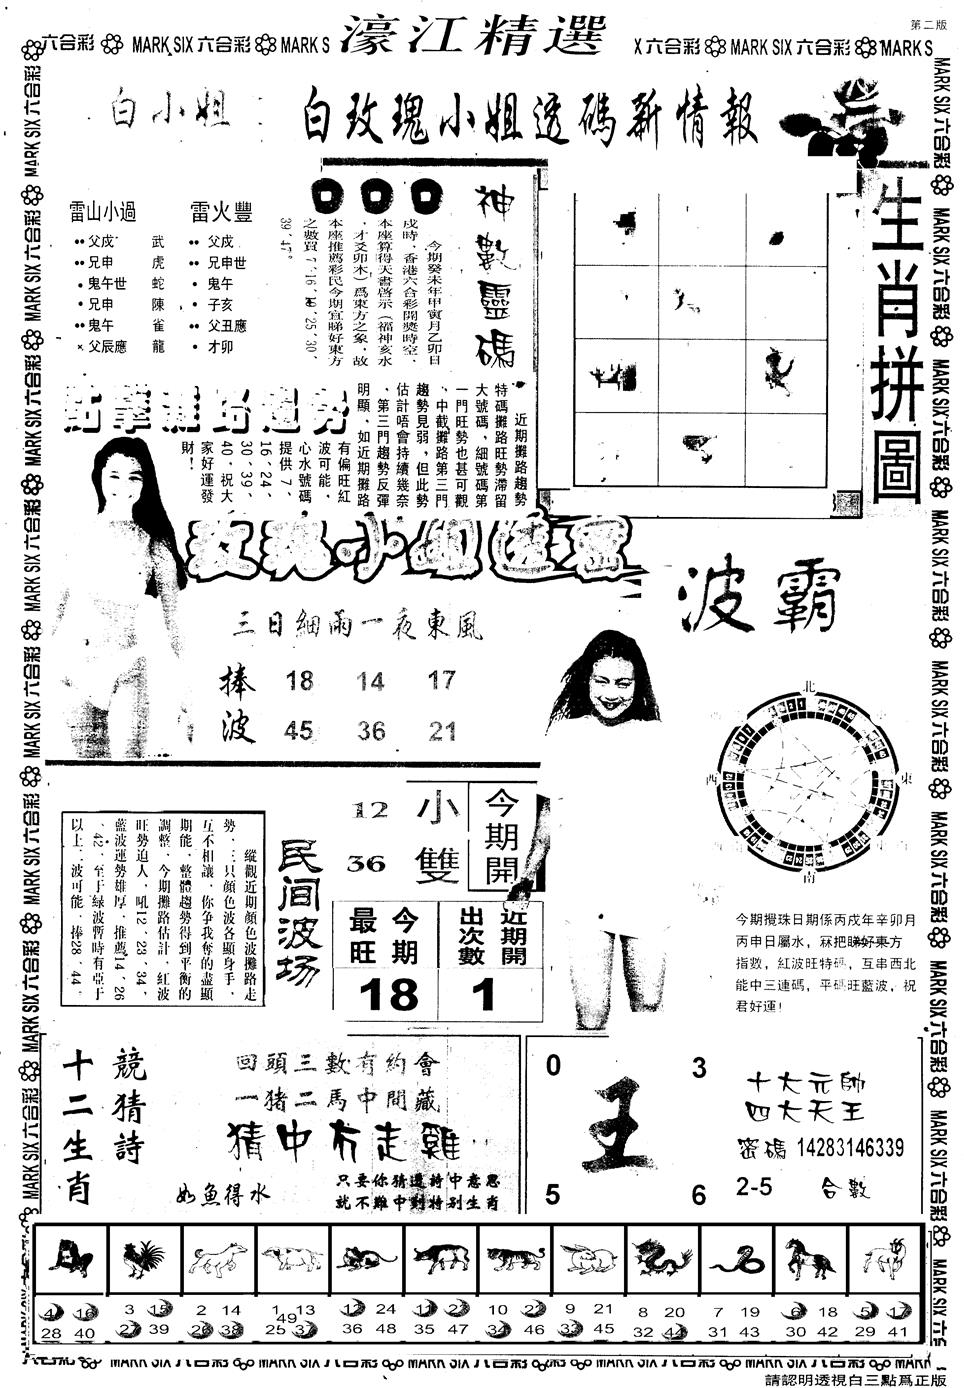 第二版
濠江精選
六合彩 MARK SIX 六合彩 MARK S
X 六合彩 MARK SIX 六合彩 MARK S
白小姐
白玫瑰小姐透碼新情報
雷山小過
雷火豐
父戍 武 父戍
兄申 虎 兄申世
鬼午世 蛇 鬼午
兄申 陳 子亥
鬼午 雀 父丑應
父辰應 龍 才卯
神數靈碼
今期癸未年甲寅月乙卯日
戍時，香港六合彩開獎時空，
本座算得天書啓示（福神亥水
，才爻卯木）爲東方之象，故
本座推薦彩民今期宜睇好東方
之數買7、16、10、25、30、
39、47。
生肖拼圖
近期攤路趨勢
特碼攤路旺勢滯留
大號碼，細號碼第
一門旺勢也甚可觀
、中截攤路第三門
趨勢見弱，但此勢
估計唔會持續幾奈
、第三門趨勢反彈
明顯，如近期攤路
有偏旺紅
波可能，
心水號碼
提供7、
16、24、
30、39、
40，祝大
家好運發
財！
三日細雨一夜東風
捧波
18 14 17
45 36 21
波霸
北
東
南
西
今期攪珠日期係丙戍年辛卯月
丙申日屬水，冧把睇好東方
指數，紅波旺特碼，互串西北
能中三連碼，平碼旺藍波，祝
君好運！
民间波场
縱觀近期顏色波攤路走
勢，三只顏色波各顯身手，
互不相讓，你争我奪的盡顯
期能，整體趨勢得到平衡的
調整，今期攤路估計，紅波
旺勢迫人，吼12、23、34，
藍波運勢雄厚，推薦14、26
、42，至于緑波暫時有亞于
以上，波可能，捧28、44。
12 小
36 雙
今期開
今期最旺
近期開出次數
18 1
十二生肖
競猜詩
回頭三數有約會
一猪二馬中間藏
猜中冇走雞
如魚得水
只要你猜透詩中意思
就不難中對特别生肖
0 3
王
5 6
十大元帥
四大天王
密碼 14283146339
2-5 合數
4 16 28 40
3 15 27 39
2 14 26 38
1 13 49 25 37
12 24 36 48
11 23 35 47
10 22 34 46
9 21 33 45
8 20 32 44
7 19 31 43
6 18 30 42
5 17 29 41
請認明透視白三點爲正版